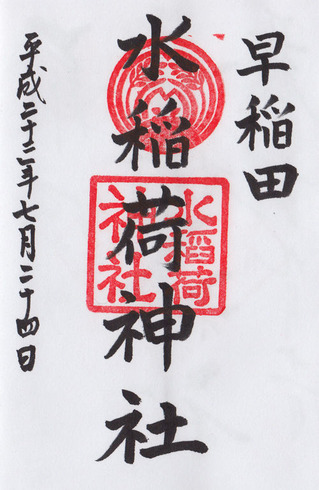 早稲田
水稲荷神社
平成二十二年七月二十四日
水稲荷
神社